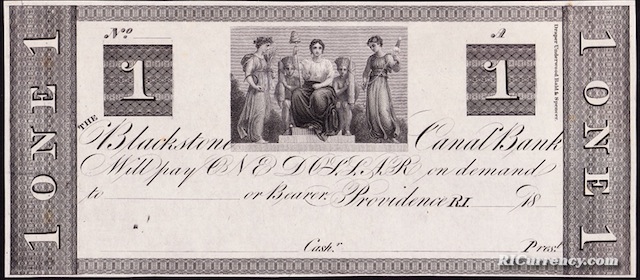 1 ONE 1
No.
A
1
1
Draper Underwood Bald & Spencer.
THE Blackstone Canal Bank
Will pay ONE DOLLAR on demand
to or Bearer. Providence R.I. 18
Cashr. Prest.
1 ONE 1
RICurrency.com